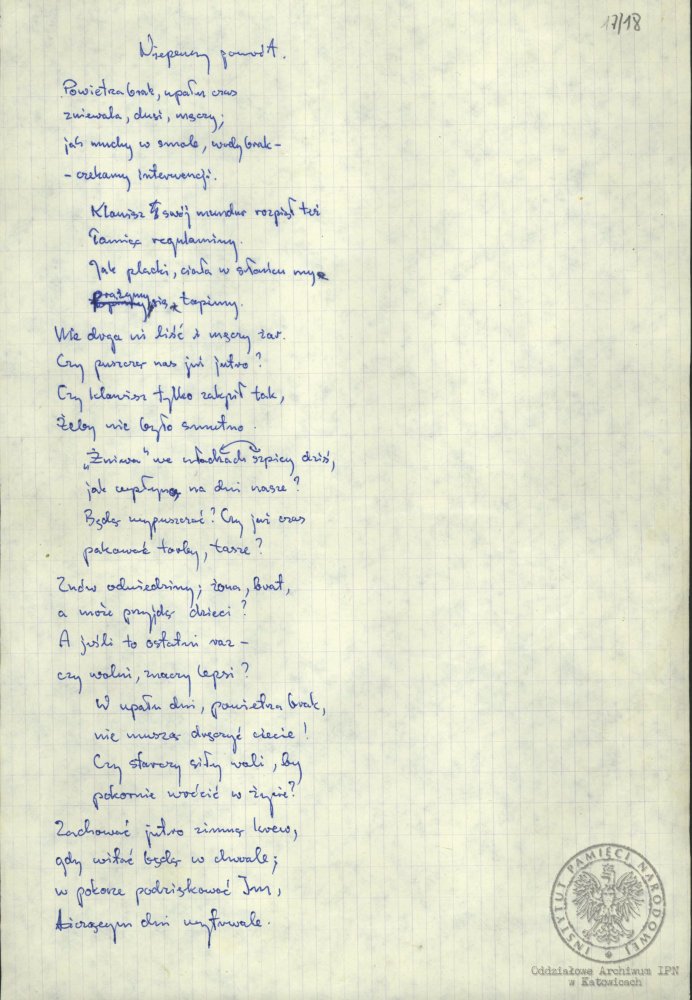 17/18
powrót.
Powietrza brak, upału czas
zniewala, dusi, męczy;
jak muchy w smole, wody brak –
– czekamy interwencji.
Klawisz swój mundur rozpiął też
łamiąc regulaminy.
Jak placki, ciała w słońcu my
prażymy się, topimy.
Nie drga ni liść i męczy żar.
Czy puszczą nas już jutro?
Czy klawisz tylko zakpił tak,
Żeby nie było smutno.
„Żniwa" we władzach szpicy dziś,
jak wpłyną na dni nasze?
Będą wypuszczać? Czy już czas
pakować torby, tasze?
Znów odwiedziny; żona, brat,
a może przyjdą dzieci?
A jeśli to ostatni raz –
czy wolni, znaczy lepsi?
W upału dni, powietrza brak,
nie muszą dręczyć ciecie!
Czy starczy siły woli, by
pokornie wrócić w życie?
Zachować jutro zimną krew,
gdy witać będą w chwale;
w pokorze podziękować Im,
liczącym dni wytrwale.
INSTYTUT PAMIĘCI NARODOWEJ
Oddziałowe Archiwum IPN
w Katowicach